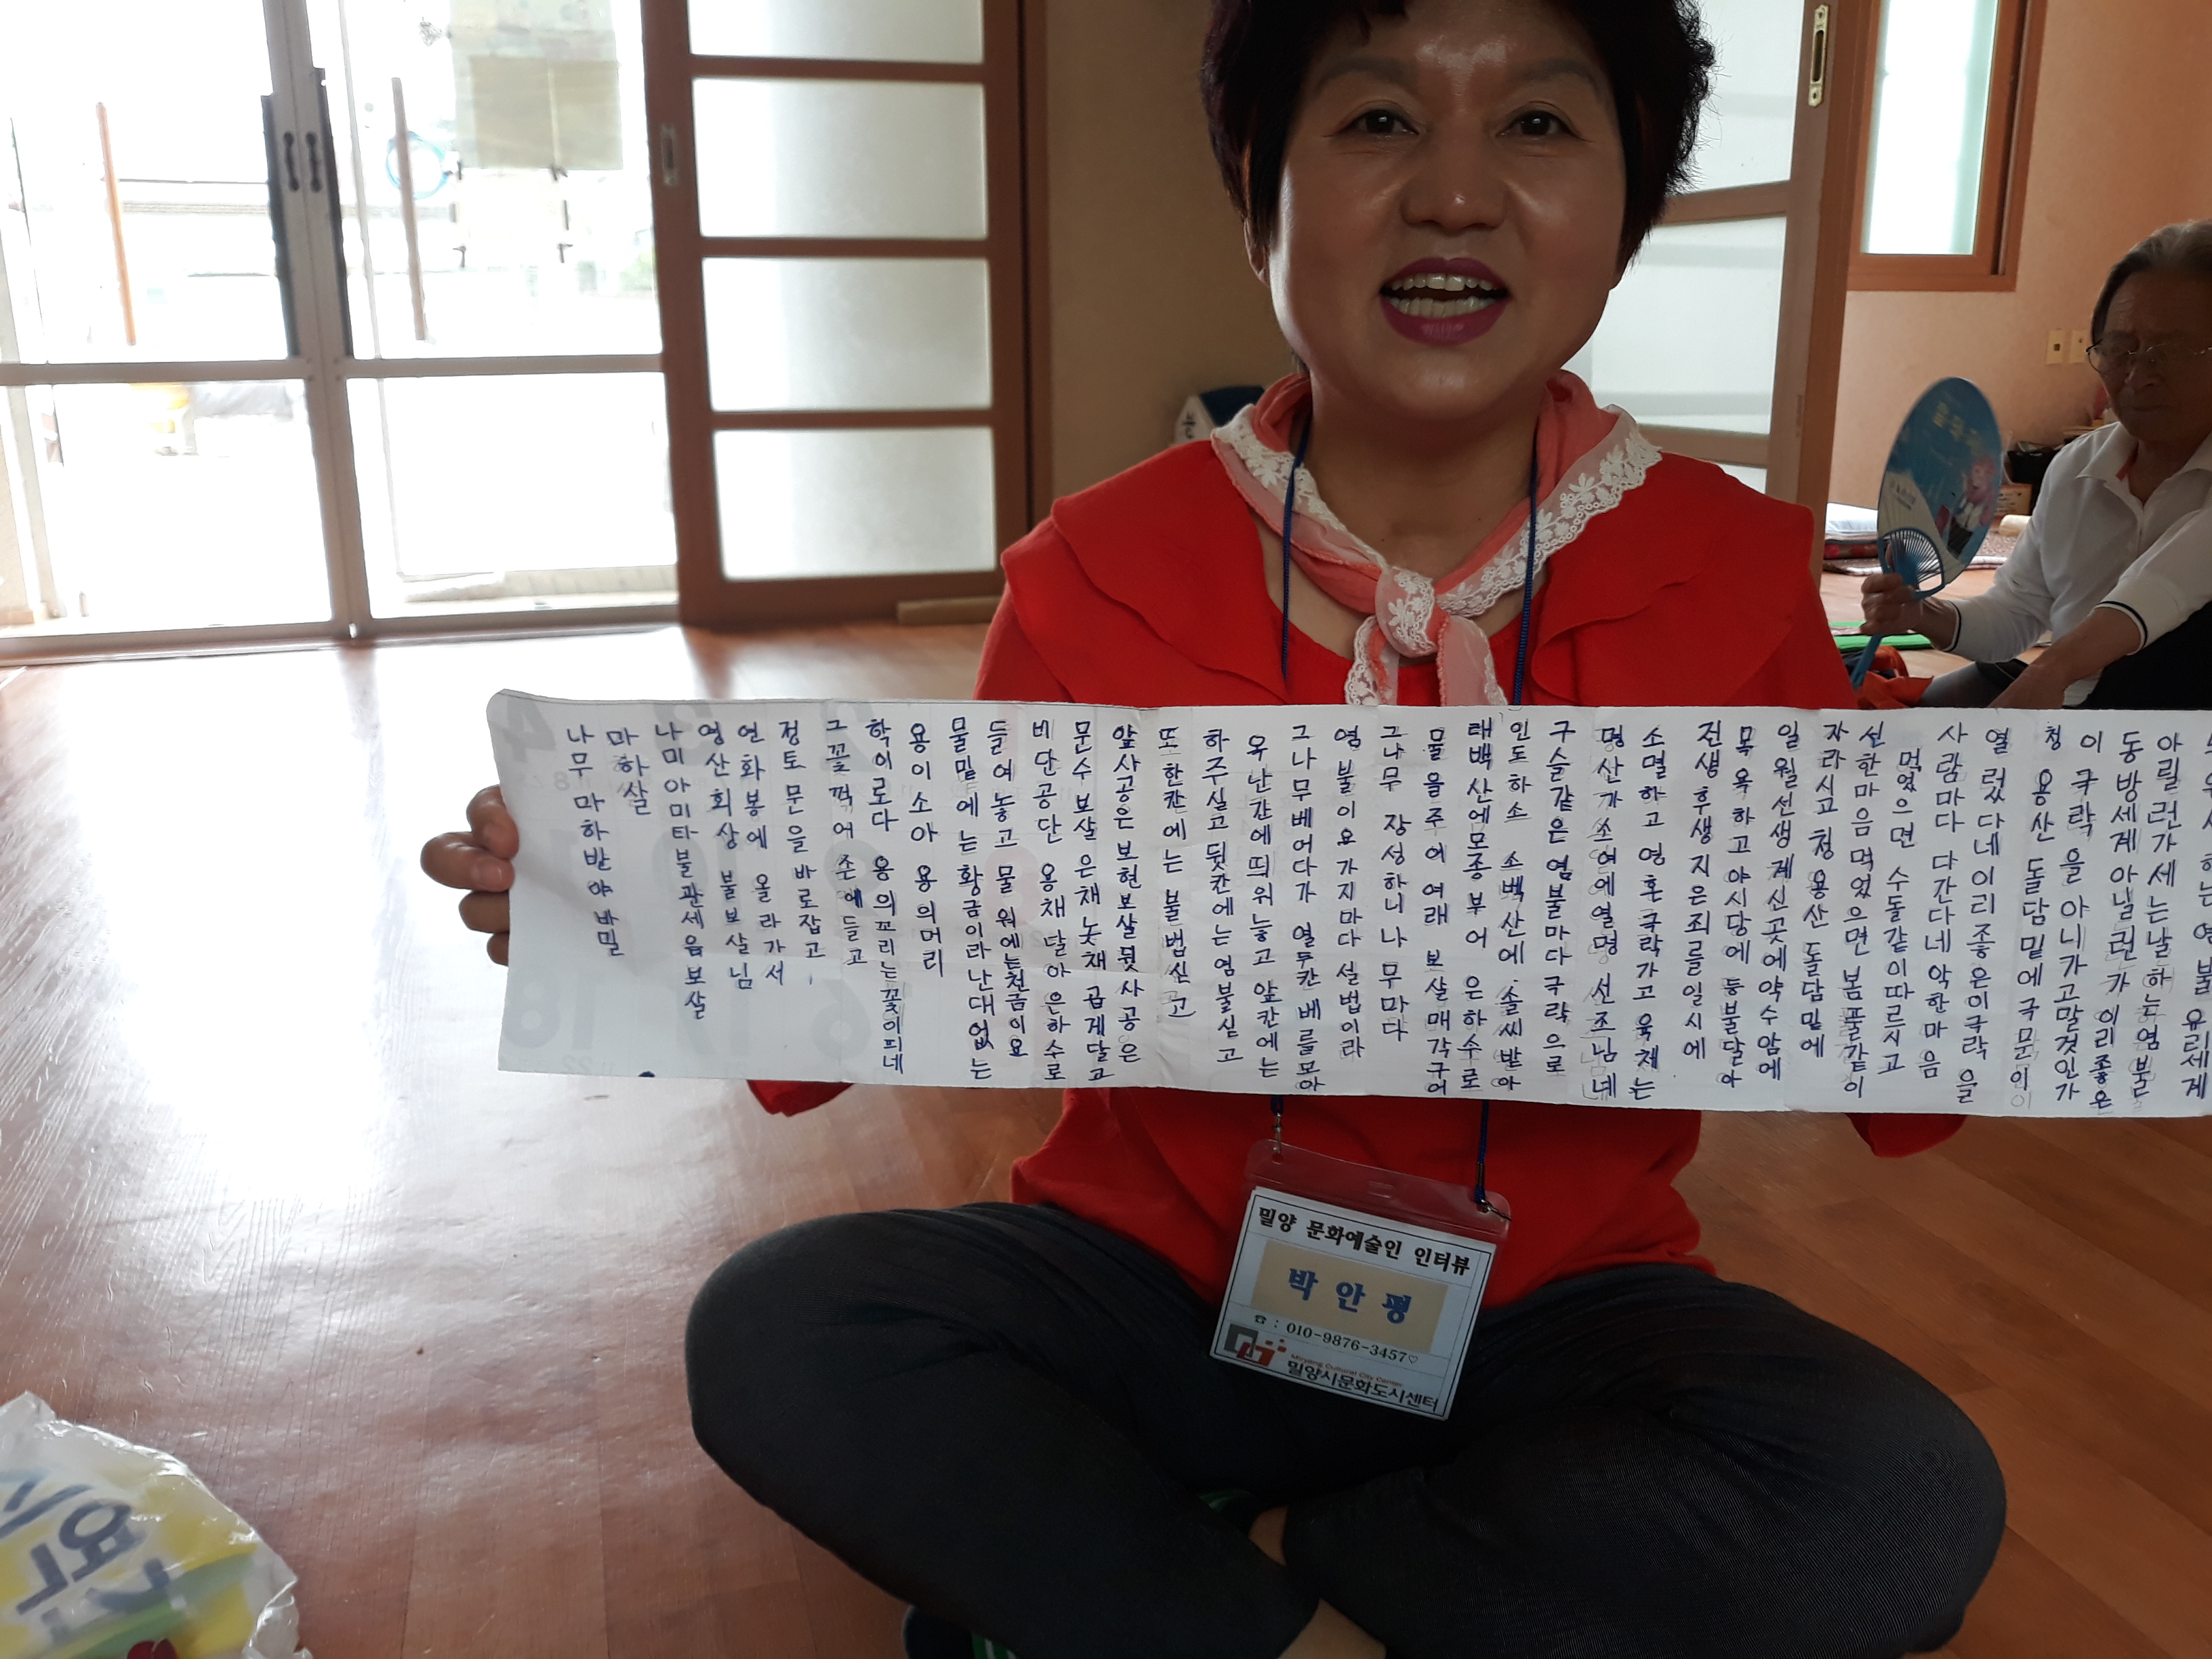 하는 염불 유리세계
아릴런가 세는날하는염불
동방세계아닐런가 이리좋은
이극락을아니가고말것인가
청용산 돌담밑에극문이
열렀다네이리좋은이극락을
사람마다 다간다네악한마음
먹었으면 수돌같이따르시고
선한마음먹었으면 봄풀같이
자라시고 청용산 돌담밑에
일월선생계신곳에약수암에
목욕하고야시당에 등불달아
전생후생지은죄를일시에
소멸하고 영혼극락가고 육체는
명산가소여에열명 선조님네
구슬같은염불마다극락으로
인도하소 소백산에 솔씨받아
태백산에모종부어 은하수로
물을주어여래 보살매각구어
그나무 장성하니나무마다
염불이요가지마다 설법이라
그나무베어다가 열두칸배를모아
옥난간에띄워놓고 앞칸에는
하주실고뒷칸에는염불싣고
또한칸에는 불법싣고
앞사공은보현보살뒷사공은
문수보살은채놋채곱게달고
비단공단 용채달아 은하수로
들여놓고 물위에는천금이요
물밑에는황금이라난대없는
용이소아 용의머리
학이로다 용의꼬리는꽃이피네
그꽃꺽어손에들고
정토문을바로잡고
연화봉에 올라가서
영산회상 불보살님
나미아미타불관세음보살
마하살
나무마하반야바밀
밀양 문화예술인 인터뷰
박안평
☎ : 010-9876-3457♡
Miryang Cultural City Center
밀양시문화도시센터